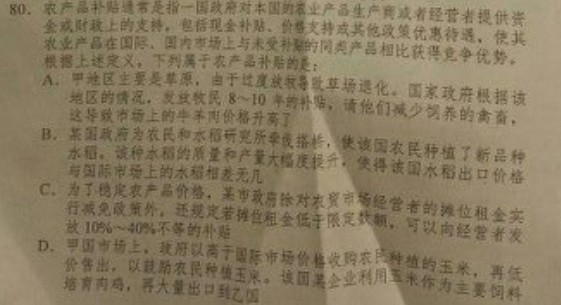 80. 农产品补贴通常是指一国政府对本国的农业产品生产商或者经营者提供资
金或财政上的支持，包括现金补贴、价格支持或其他政策优惠待遇，使其
农业产品在国际、国内市场上与未受补贴的同类产品相比获得竞争优势。
根据上述定义，下列属于农产品补贴的是：
A. 甲地区主要是草原，由于过度放牧导致草场退化。国家政府根据该
地区的情况，发放牧民 8～10 年的补贴，请他们减少饲养的禽畜，
这导致市场上的牛羊肉价格升高了
B. 某国政府为农民和水稻研究所牵线搭桥，使该国农民种植了新品种
水稻。该种水稻的质量和产量大幅度提升，使得该国水稻出口价格
与国际市场上的水稻相差无几
C. 为了稳定农产品价格，某市政府除对农贸市场经营者的摊位租金实
行减免政策外，还规定若摊位租金低于限定数额，可以向经营者发
放 10%～40%不等的补贴
D. 甲国市场上，政府以高于国际市场价格收购农民种植的玉米，再低
价售出，以鼓励农民种植玉米。该国某企业利用玉米作为主要饲料
培育肉鸡，再大量出口到乙国